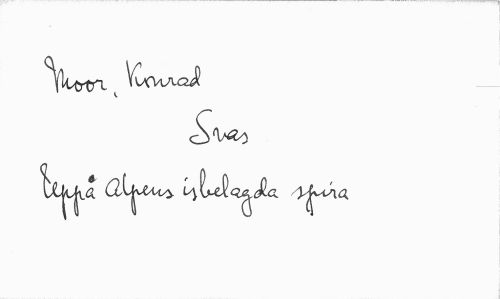 Moor, Konrad
Svas
Uppå Alpens isbelagda spira